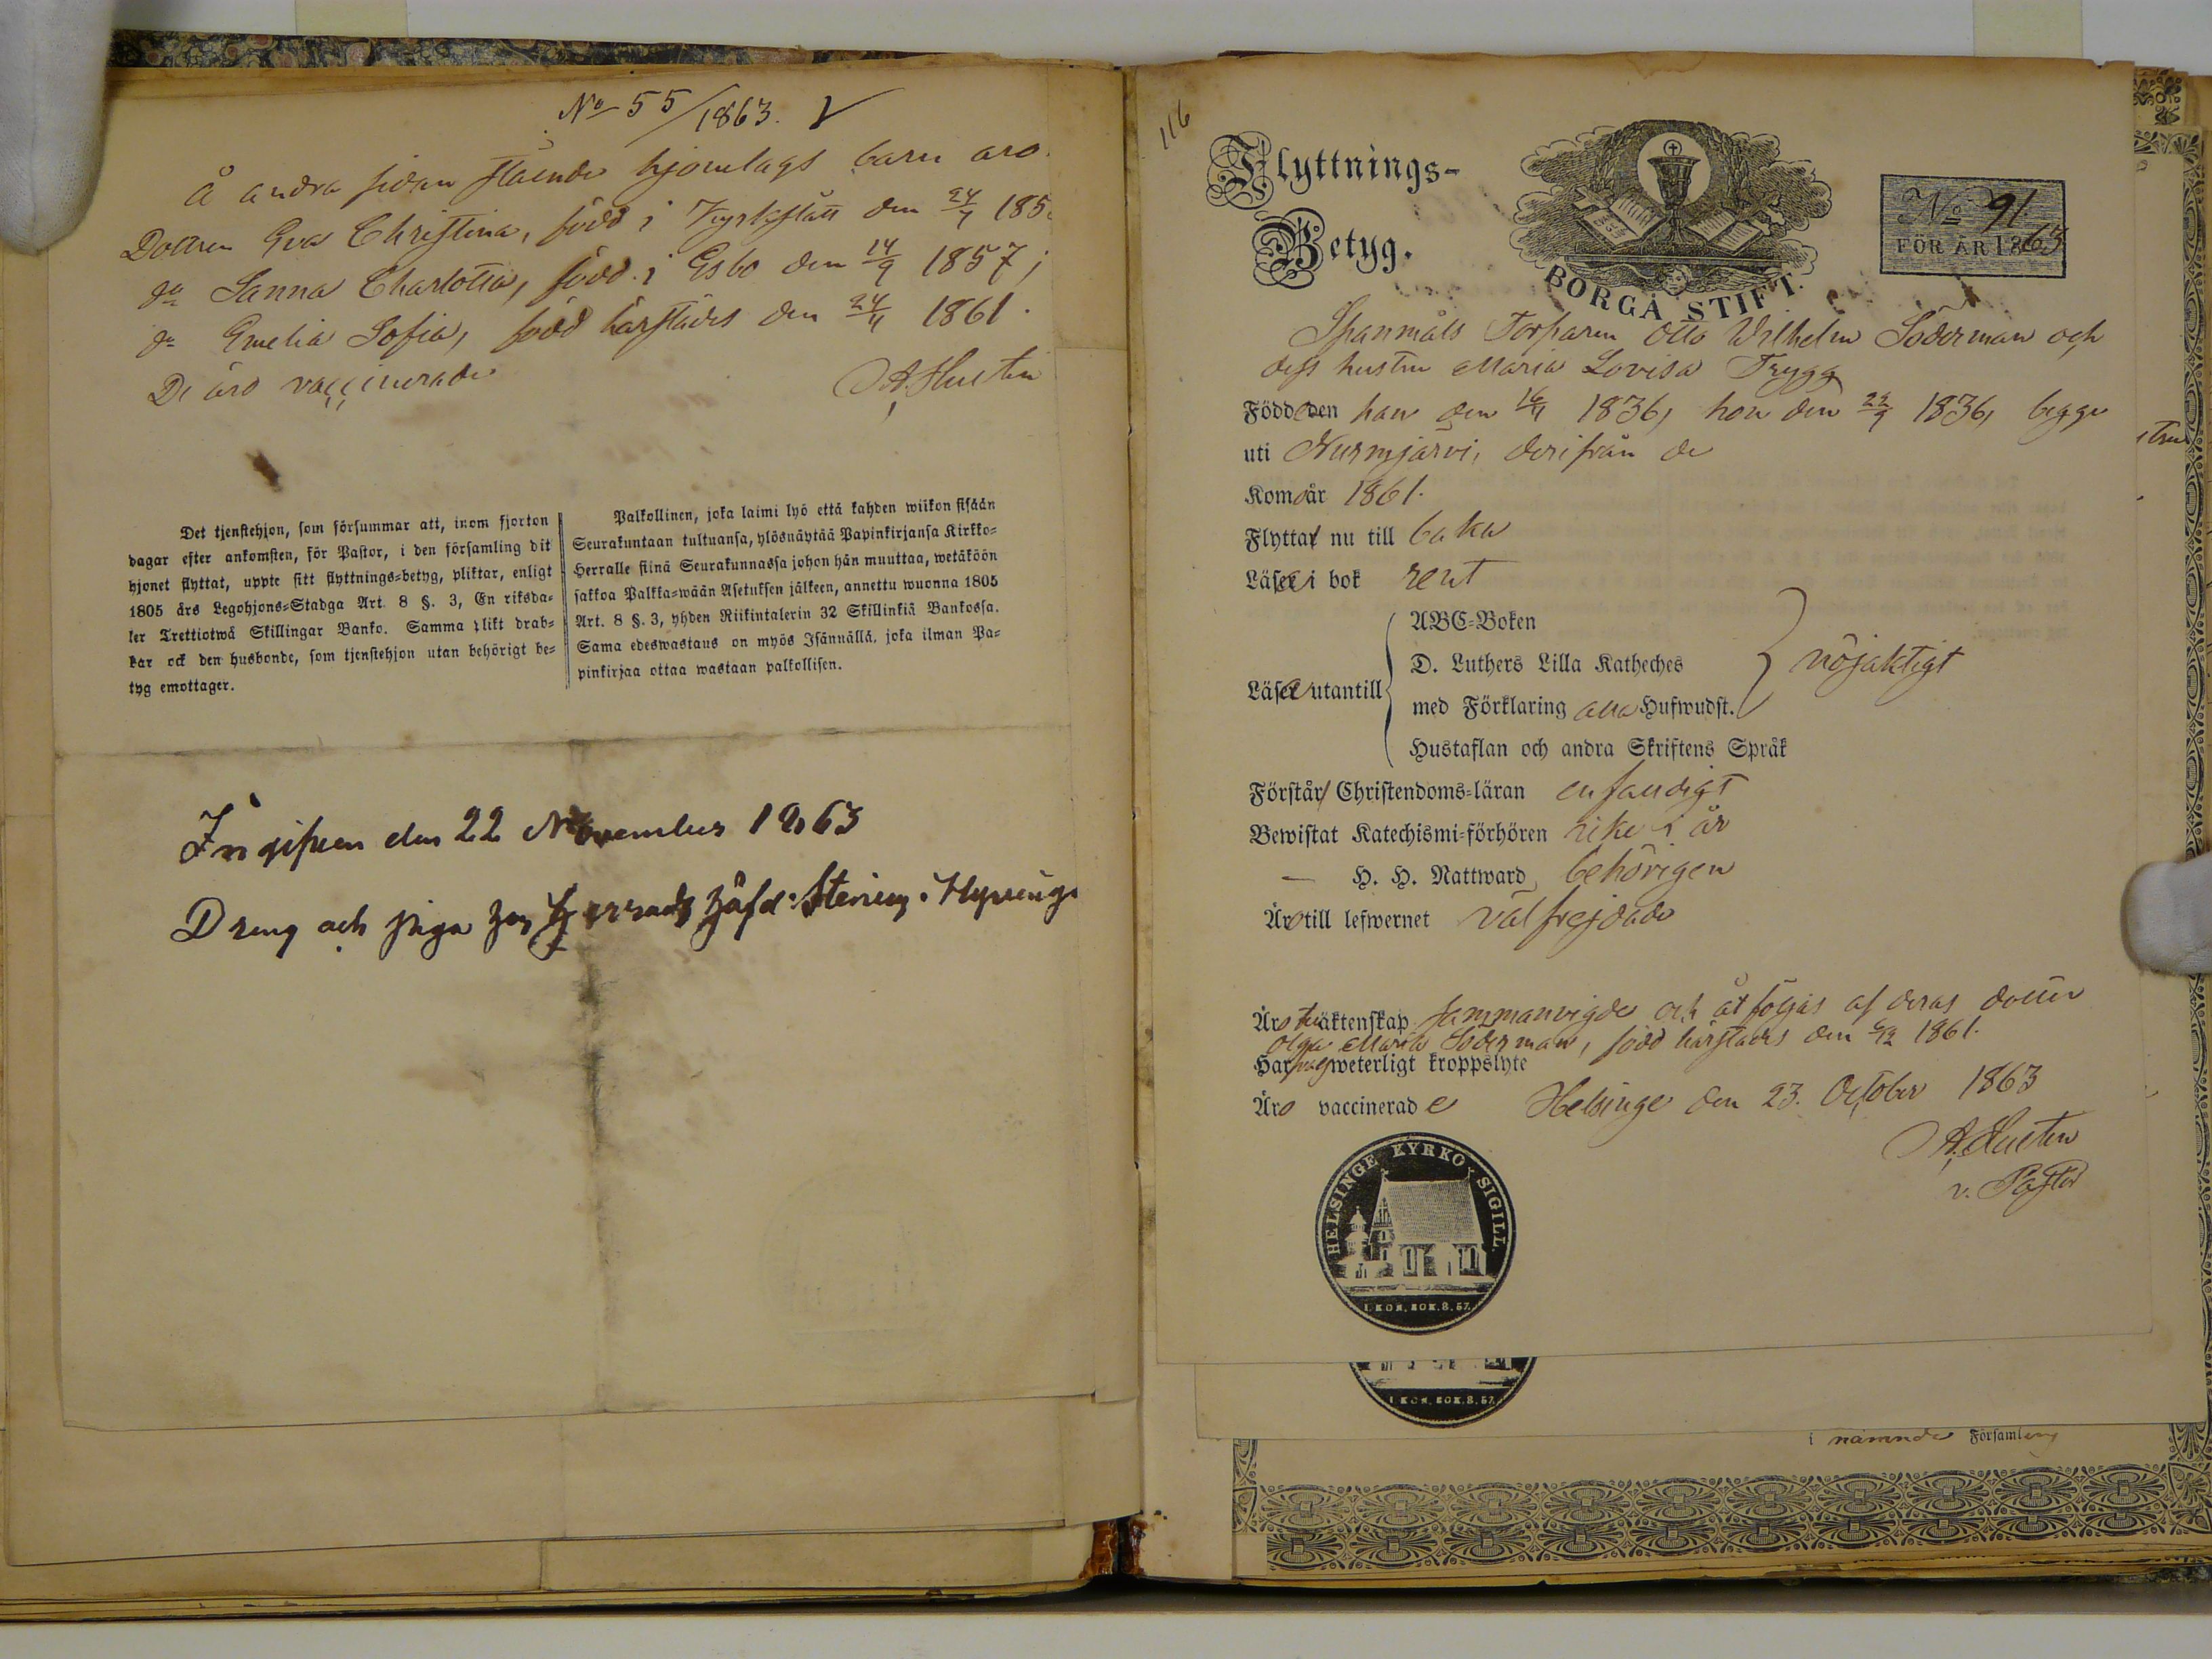 No 55/1863.
Å andra sidan stående hjonelags barn äro
Dottren Eva Christina, född i Kyrkslätt den 24/7 185
do Sanna Charlotta, född i Esbo den 14/9 1857;
do Emelia Sofia, född härstädes den 24/4 1861.
De äro vaccinerade
A. Husten
Det tjenstehjon, som försummar att, inom fjorton
dagar efter ankomsten, för Pastor, i den församling dit
hjonet flyttat, uppte sitt flyttnings=betyg, pliktar, enligt
1805 års Legohjons=Stadga Art. 8 §. 3, En riksda=
ler Trettiotwå Skillingar Banko. Samma plikt drab=
bar ock den husbonde, som tjenstehjon utan behörigt be=
tyg emottager.
Palkollinen, joka laimi lyö että kahden wiikon sisään
Seurakuntaan tultuansa, ylösnäytää Papinkirjansa Kirkko=
Herralle siinä Seurakunnassa johon hän muuttaa, wetäköön
sakkoa Palkka=wään Asetuksen jälkeen, annettu wuonna 1805
Art. 8 §. 3, yhden Riikintalerin 32 Skillinkiä Bankossa.
Sama edeswastaus on myös Isännällä, joka ilman Pa=
pinkirjaa ottaa wastaan palkollisen.
den 22 November 1863
Dreng och piga
116
Flyttnings-
Betyg.
BORGÅ STIFT.
No 91
FÖR ÅR 1863
Spanmåls Torparen Otto Wilhelm Söderman och
dess hustru Maria Lovisa Trygg
Född den han den 16/4 1836, hon den 22/9 1836, begge
uti Nurmijärvi, derifrån de
Komo år 1861.
Flytta nu till baka
Läsa i bok rent
Läsa utantill
ABC=Boken
D. Luthers Lilla Katheches
med Förklaring alla Hufwudst.
Hustaflan och andra Skriftens Språk
nöjaktigt
Förstår Christendoms=läran enfaldigt
Bewistat Katechismi=förhören icke i år
— H. H. Nattward behörigen
Äro till lefwernet välfrejdade
Äro äktenskap sammanvigde och åtföljas af deras dotter
Olga Maria Söderman, född härstädes den 6/12 1861.
Har weterligt kroppslyte
Äro vaccinerade
Helsinge den 23. October 1863
A. Husten
v. Pastor
HELSINGE KYRKO SIGILL.
I. KON. BOK. 8. 57.
I. KON. BOK. 8. 57.
i nämnde Församling